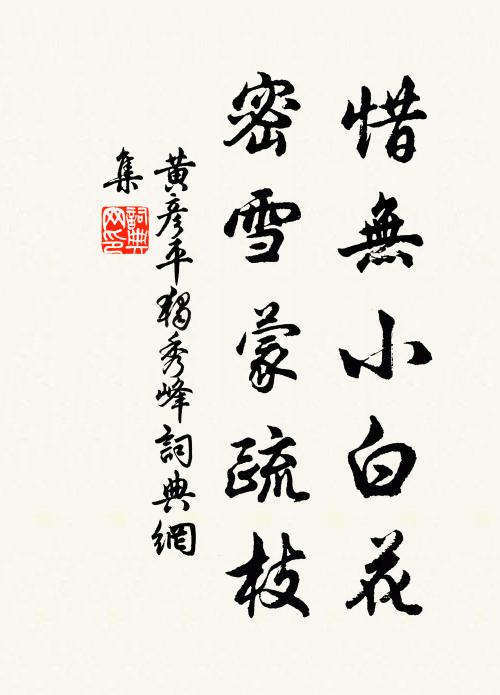 惜無小白花
密雪蒙疏枝
黃彥平獨秀峰詞典網
集
詞典網印